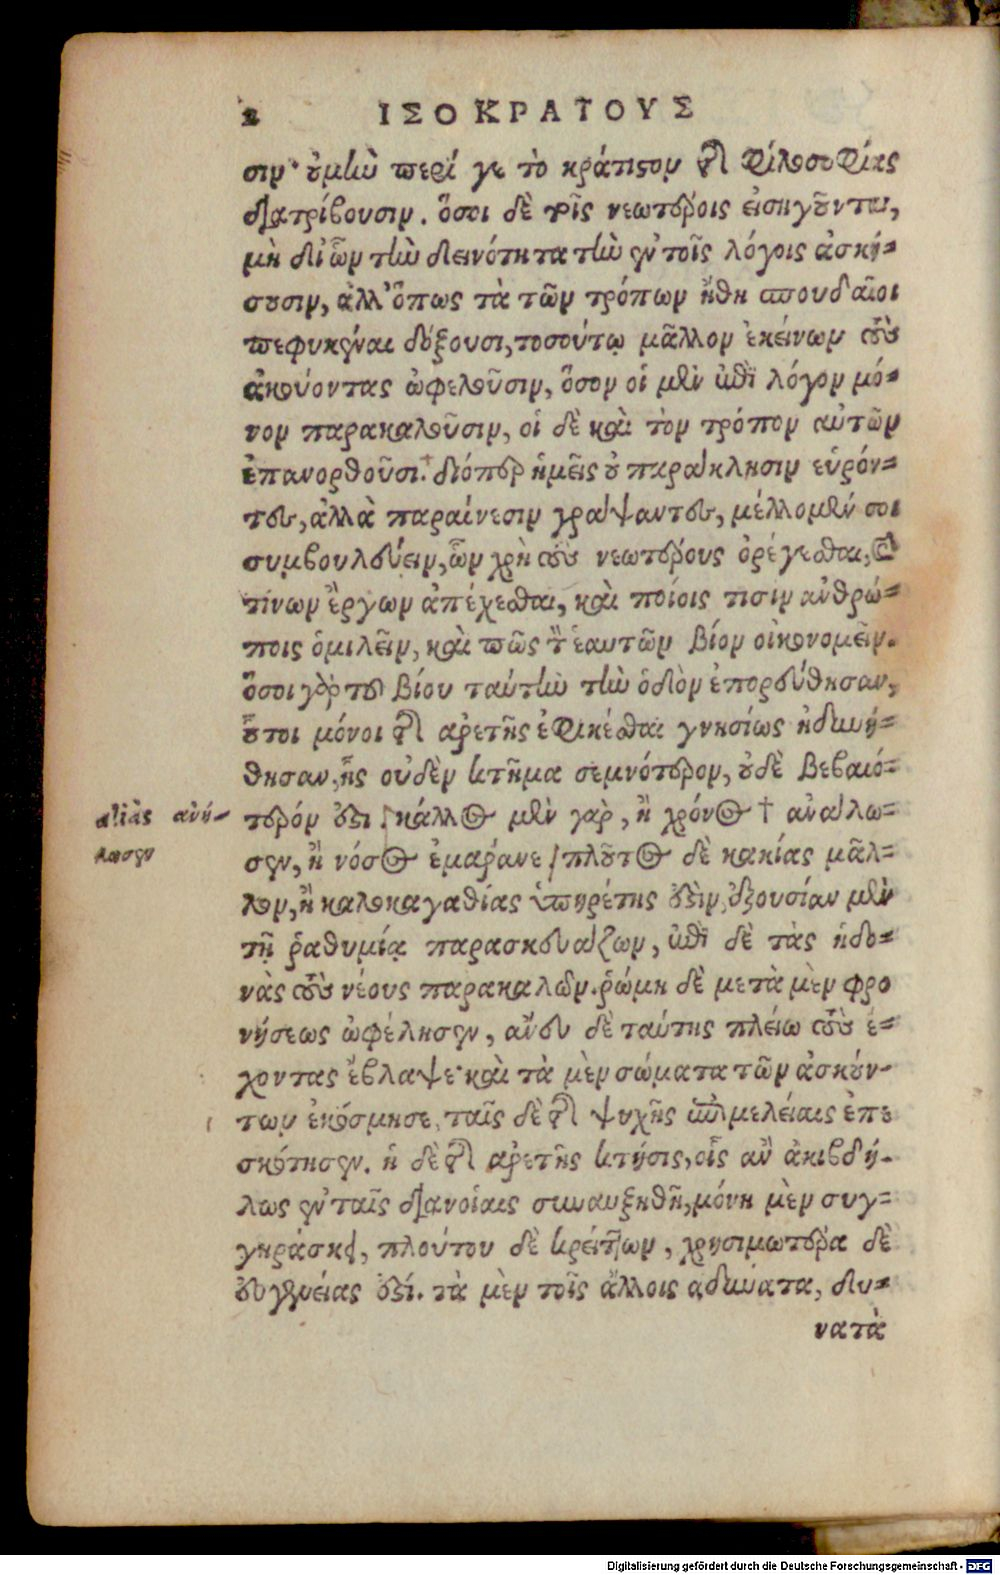 2 ΙΣΟΚΡΑΤΟΥΣ
σιν· οὐ μὴν περί γε τὸ κράτιστον τῆς φιλοσοφίας
διατρίβουσιν. ὅσοι δὲ τοῖς νεωτέροις εἰσηγοῦνται,
μὴ δι' ὧν τὴν δεινότητα τὴν ἐν τοῖς λόγοις ἀσκή-
σουσιν, ἀλλ' ὅπως τὰ τῶν τρόπων ἤθη σπουδαῖοι
πεφυκέναι δόξουσι, τοσούτῳ μᾶλλον ἐκείνων τοὺς
ἀκούοντας ὠφελοῦσιν, ὅσον οἱ μὲν ἐπὶ λόγον μό-
νον παρακαλοῦσιν, οἱ δὲ καὶ τὸν τρόπον αὐτῶν
ἐπανορθοῦσι. διόπερ ἡμεῖς οὐ παράκλησιν εὑρόν-
τες, ἀλλὰ παραίνεσιν γράψαντες, μέλλομέν σοι
συμβουλεύειν, ὧν χρὴ τοὺς νεωτέρους ὀρέγεσθαι, καὶ
τίνων ἔργων ἀπέχεσθαι, καὶ ποίοις τισὶν ἀνθρώ-
ποις ὁμιλεῖν, καὶ πῶς τὸν ἑαυτῶν βίον οἰκονομεῖν.
ὅσοι γὰρ τοῦ βίου ταύτην τὴν ὁδὸν ἐπορεύθησαν,
οὗτοι μόνοι τῆς ἀρετῆς ἐφικέσθαι γνησίως ἠδυνή-
θησαν, ἧς οὐδὲν κτῆμα σεμνότερον, οὐδὲ βεβαιό-
τερόν ἐστι. κάλλος μὲν γὰρ, ἢ χρόνος † ἀνάλω-
σεν, ἢ νόσος ἐμάρανε. πλοῦτος δὲ κακίας μᾶλ-
λον, ἢ καλοκαγαθίας ὑπηρέτης ἐστὶν, ἐξουσίαν μὲν
τῇ ῥαθυμίᾳ παρασκευάζων, ἐπὶ δὲ τὰς ἡδο-
νὰς τοὺς νέους παρακαλῶν. ῥώμη δὲ μετὰ μὲν φρο
νήσεως ὠφέλησεν, ἄνευ δὲ ταύτης πλείω τοὺς ἔ-
χοντας ἔβλαψε· καὶ τὰ μὲν σώματα τῶν ἀσκούν-
των ἐκόσμησε, ταῖς δὲ τῆς ψυχῆς ἐπιμελείαις ἐπε
σκότησεν. ἡ δὲ τῆς ἀρετῆς κτῆσις, οἷς ἂν ἀκιβδή-
λως ἐν ταῖς διανοίαις συναυξηθῇ, μόνη μὲν συγ-
γηράσκει, πλούτου δὲ κρείττων, χρησιμωτέρα δὲ
εὐγενείας ἐστί. τὰ μὲν τοῖς ἄλλοις ἀδύνατα, δυ-
νατὰ
aliàs ἀνή-
λωσεν
Digitalisierung gefördert durch die Deutsche Forschungsgemeinschaft - DFG